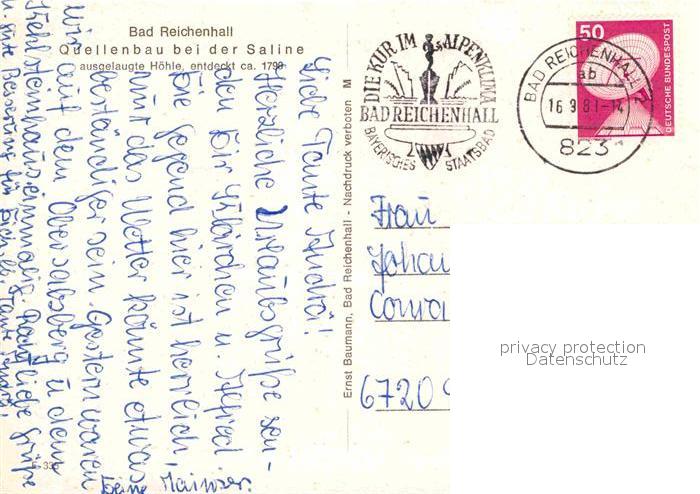 Bad Reichenhall
Quellenbau bei der Saline
ausgelaugte Höhle, entdeckt ca. 1798
Liebe Tante
Herzliche Urlaubsgrüße sen-
den Dir Klärchen u.
Die Gegend hier ist herrlich,
nur das Wetter könnte etwas
beständiger sein. Gestern waren
wir auf dem Obersalzberg u. dem
Kehlsteinhaus einmalig. liebe Grüße
u. gute Besserung für Dich, liebe Tante
Deine Mainzer.
335
Ernst Baumann, Bad Reichenhall - Nachdruck verboten M
DIE KUR IM ALPENKLIMA
BAD REICHENHALL
BAYERISCHES STAATSBAD
BAD REICHENHALL 2
ab
16.9.81-14
823
50
DEUTSCHE BUNDESPOST
Frau
Johan
Conra
6720
privacy protection
Datenschutz